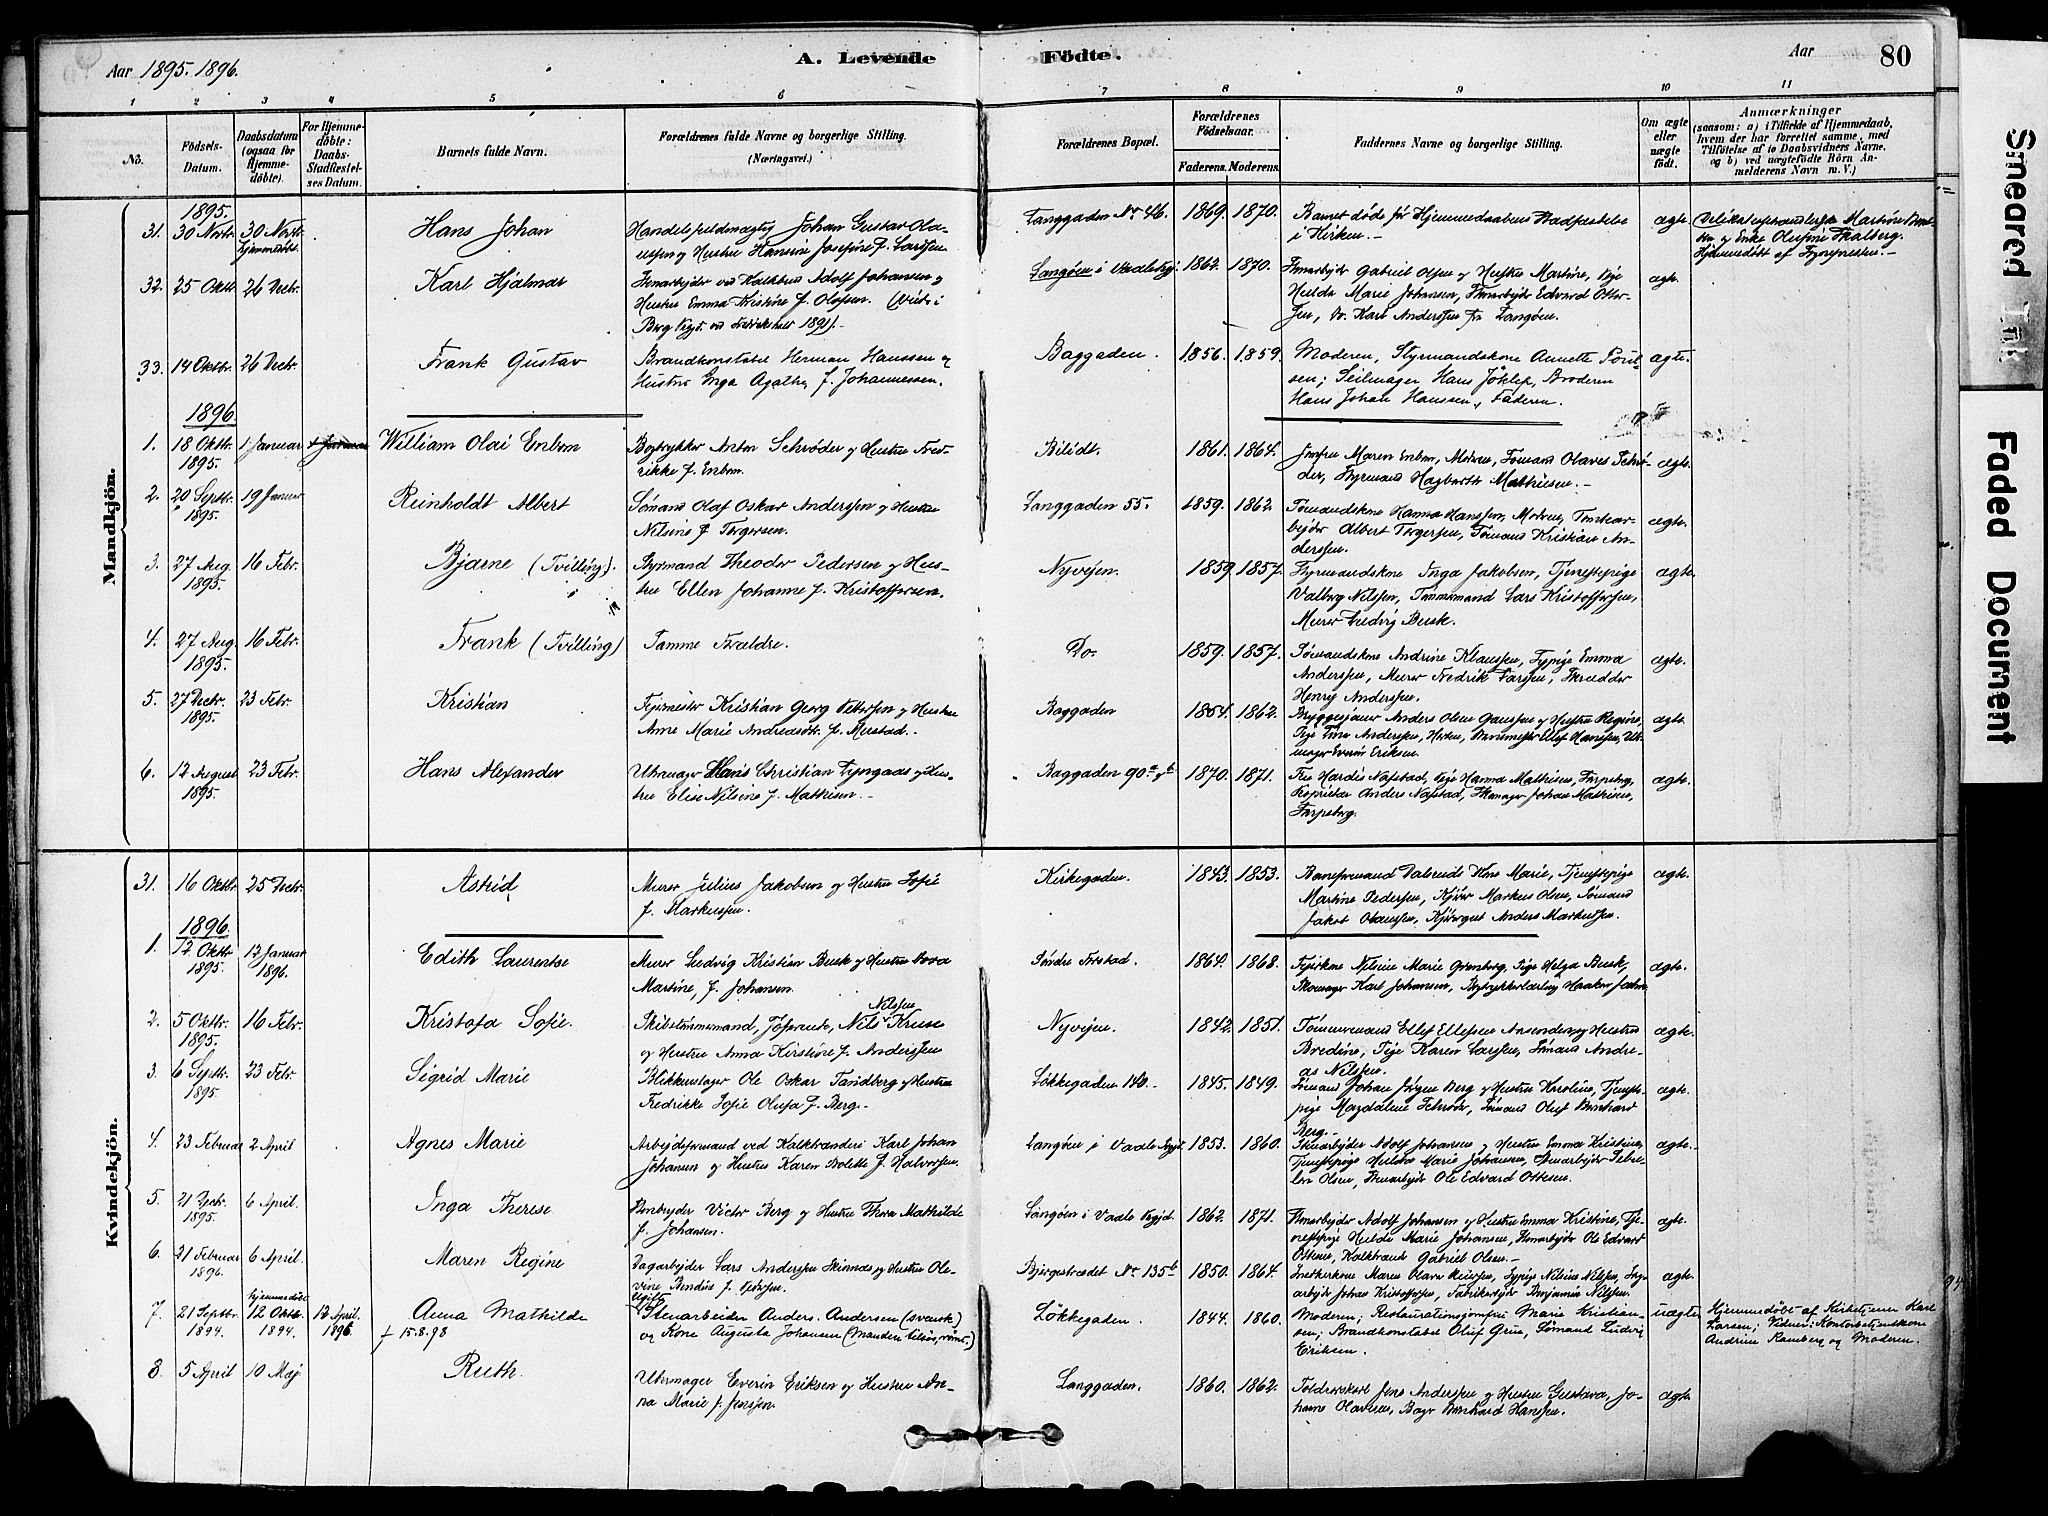 Aar 1895. 1896.
A. Levende
Födte.
Aar
80
1 2 3 4 5 6 7 8 9 10 11
No.
Födsels-
Datum.
Daabsdatum
(ogsaa for
Hjemme-
döbte).
For Hjemme-
döbte:
Daabs-
Stadfæstel-
ses Datum.
Barnets fulde Navn.
Forældrenes fulde Navne og borgerlige Stilling.
(Næringsvei.)
Forældrenes Bopæl.
Forældrenes
Födselsaar.
Faderens. Moderens.
Faddernes Navne og borgerlige Stilling.
Om ægte
eller
uægte
födt.
Anmærkninger
(saasom: a) i Tilfælde af Hjemmedaab,
hvem der har forrettet samme, med
Tilföielse af to Daabsvidners Navne,
og b) ved uægtefödte Börn An-
melderens Navn m. V.)
Mandkjön.
1895.
31. 30 Novbr. 30 Novbr.
hjemmedöbt.
Hans Johan
Handelsfuldmægtig Johan Gustav Ola-
ussen og Hustru Hansine Josefine f. Larssen
Langgaden No 46. 1869. 1870.
Barnet döde för Hjemmedaabens Stadfæstelse
i Kirken.
ægte
32. 25 Oktbr. 26 Decbr.
Karl Hjalmar
Stenarbeider ved Kalkbrud Adolf Johansen og
Hustru Emma Kristine f. Olafsen. (Viet i
Berg Prgt. ved Fredrikshald 1891).
Langöen i Vaale Prgj. 1862. 1870.
Stenarbeider Gabriel Olsen og Hustru Martine, Pige
Hilda Marie Johansen, Stenarbeider Edvard Otte-
sen, Karl Anderssen fra Langöen.
ægte.
33. 14 Oktbr. 26 Decbr.
Frank Gustav
Brandkonstabel Herman Hanssen og
Hustru Inga Agathe f. Johannessen.
Baggaden. 1856. 1859.
Moderen, Styrmandskone Annette Poul-
sen; Seilmager Hans Jöhlef, Broderen
Hans Johan Hanssen, Faderen.
ægte.
1896.
1. 18 Oktbr. 1 Januar
1895.
William Olai Enbom
Bogtrykker Anton Schröder og Hustru Fred-
rikke f. Enbom.
Bilidt. 1861. 1864.
Jomfru Maren Enbom, Moderen, Sömand Olaves Schrö-
der, Styrmand Hagbarth Mathisen.
ægte.
2. 20 Septbr. 19 Januar
1895.
Reinholdt Albert
Sömand Olaf Oskar Anderssen og Hustru
Nilsine f. Torgersen.
Langgaden 55. 1859. 1862.
Sömandskone Hanna Hanssen, Moderen, Tomtear-
beider Albert Torgersen, Sömand Kristian An-
derssen.
ægte.
3. 27 Aug. 16 Febr.
1895.
Bjarne (Tvilling).
Styrmand Theodor Pedersen og Hus-
tru Ellen Johanne f. Kristoffersen.
Nyveien. 1859. 1857.
Styrmandskone Inga Jakobsen, Tjenestepige
Valborg Nilssen, Tömmermand Lars Kristoffersen,
Murer Ludvig Busk.
ægte.
4. 27 Aug. 16 Febr.
1895.
Frank (Tvilling)
Samme Forældre.
Do. 1859. 1857.
Sömandskone Andrine Klaussen, Sypige Emma
Anderssen, Murer Fredrik Larssen, Skrædder
Henry Anderssen.
ægte.
5. 27 Decbr. 23 Febr.
1895.
Kristian
Feiermester Kristian Georg Petersen og Hustru
Anne Marie Andreasdtr. f. Mustad.
Baggaden 1854. 1862.
Bryggesjauer Anders Olsen Gaussen og Hustru Regine,
Pige Tina Anderssen, Ellef Hanssen, Uhr-
mager Everin Eriksen.
ægte.
6. 12 August 23 Febr.
1895.
Hans Alexander
Uhrmager Hans Christian Lyngaas og Hus-
tru Elise Nilsine f. Mathisen.
Baggaden 90 a og b 1870. 1871.
Fru Hardis Nafstad, Pige Hanna Mathisen, Sarpsborg,
Proprietær Anders Nafstad, Skomager Johan Mathisen,
Sarpsborg.
ægte.
Kvindekjön.
31. 16 Oktbr. 25 Decbr.
Astrid
Murer Julius Jakobsen og Hustru Sofie
f. Markussen.
Kirkegaden. 1843. 1853.
Marie, Tjenestepige
Martine Pedersen, Kjörer Markus Olsen, Sömand
Jakob Olaussen, Kjöregut Anders Markussen.
ægte.
1896.
1. 12 Oktbr. 12 Januar
1895. 1896.
Edith Laurentse
Murer Ludvig Kristian Busk og Hustru Nora
Martine, f. Johansen.
Söndre Forstad. 1864. 1868.
Nilsine Marie Grönberg, Pige Helga Busk,
Skomager Karl Johansen, Bogtrykkerlærling Haakon
ægte.
2. 5 Oktbr. 16 Febr.
1895.
Kristofa Sofie.
Skibstömmermand, Nils Nilssen Kruse
og Hustru Anna Kirstine f. Anderssen
Nyveien. 1842. 1851.
Tömmermand Ellef Ellefsen og Hustru
Bredine, Pige Karen Larssen, Sömand Andre-
as Nilssen.
ægte.
3. 6 Septbr. 23 Febr.
1895.
Sigrid Marie
Blikkenslager Ole Oskar Sandberg og Hustru
Fredrikke Sofie Olufa f. Berg.
Lökkegaden 140. 1845. 1849.
Sömand Johan Jörgen Berg og Hustru Karoline, Tjeneste-
pige Magdalene Schröder, Sömand Oluf Bernhard
Berg.
ægte.
4. 23 Februar 2 April
Agnes Marie
Arbeidsformand ved Kalkbrænderi Karl Johan
Johansen og Hustru Karen Bolette f. Halvorsen.
Langöen i Vaale Prgj. 1853. 1860.
Stenarbeider Adolf Johansen og Hustru Emma Kristine,
Tjenestepige Hilda Marie Johansen, Stenarbeider
Olsen, Stenarbeider Ole Edvard Ottesen.
ægte.
5. 21 Decbr. 6 April.
1895.
Inga Therese
Stenarbeider Victor Berg og Hustru Thora Mathilde
f. Johansen.
Langöen i Vaale Prgjd. 1862. 1871.
Stenarbeider Adolf Johansen og Hustru Emma Kristine, Tje-
nestepige Hilda Marie Johansen, Stenarbeider Ole Edvard
Ottesen, Kalkbrænder Gabriel Olsen.
ægte.
6. 21 Februar 6 April.
1896.
Maren Regine
Dagarbeider Lars Anderssen Skinnes og Hustru Ole-
vine f. Pedersen.
Bjergestrædet No 135 b 1850. 1864.
Snekkerkone Maren Olava Meiersen, Sypige Nilsine Nilssen,
arbeider Johan Kristoffersen, Fabrikarbeider Benjamin Nilssen.
ægte.
7. 21 Septbr. hjemmedöbt 12 Oktbr. 12 April.
1894. 1894. 1896.
Anna Mathilde
† 15.8.98
Ugift
Stenarbeider Anders Andersen (svensk)
og Kone Augusta Johansen (Manden tilsin, römt.)
Lökkegaden. 1844. 1860.
Moderen; Restaurationsjomfru Marie Kristian-
sen; Brandkonstabel Oluf Grue, Sömand Ludvig
Eriksen.
uægte
Hjemmedöbt af Kirketjener Karl
Larsen; Vidner: Kontorbetjentkone
Andrine Ramberg og Moderen.
8. 5 April 10 Maj
Ruth.
Uhrmager Everin Eriksen og Hustru An-
na Marie f. Jenssen.
Langgaden. 1860. 1862.
Toldrorskarl Jens Anderssen og Hustru Gustava, Jo-
hanne Olavesen, Bager Bernhard Hanssen.
ægte.
Smeared Ink
Faded Document